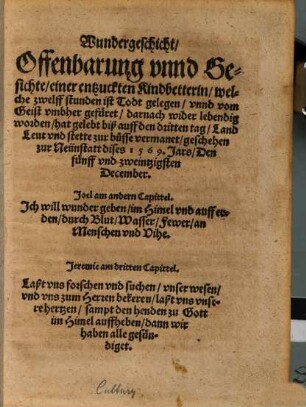 Wundergeschicht/
Offenbarung vnnd Ge-
sichte/einer entzuckten Kindbetterin/wel-
che zwelff stunden ist Todt gelegen/vnnd vom
Geist vmbher gefüret/darnach wider lebendig
worden/hat gelebt biß auff den dritten tag/Land
Leut vnd stette zur bůsse vermanet/geschehen
zur Neůnstatt dises 1569. Jars/Den
fünff vnd zweintzigsten
December.
Joel am andern Capittel.
Ich will wunder geben/im Himel vnd auff er-
den/durch Blut/Wasser/Fewer/an
Menschen vnd Vihe.
Jeremie am dritten Capittel.
Laßt vns forschen vnd suchen/vnser wesen/
vnd vns zum Herren bekeren/laßt vns vnse-
re hertzen/sampt den henden zu Gott
im Himel auffheben/dann wir
haben alle gesün-
diget.